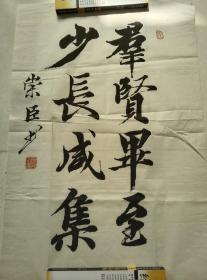 羣賢畢至
少長咸集
崇臣书